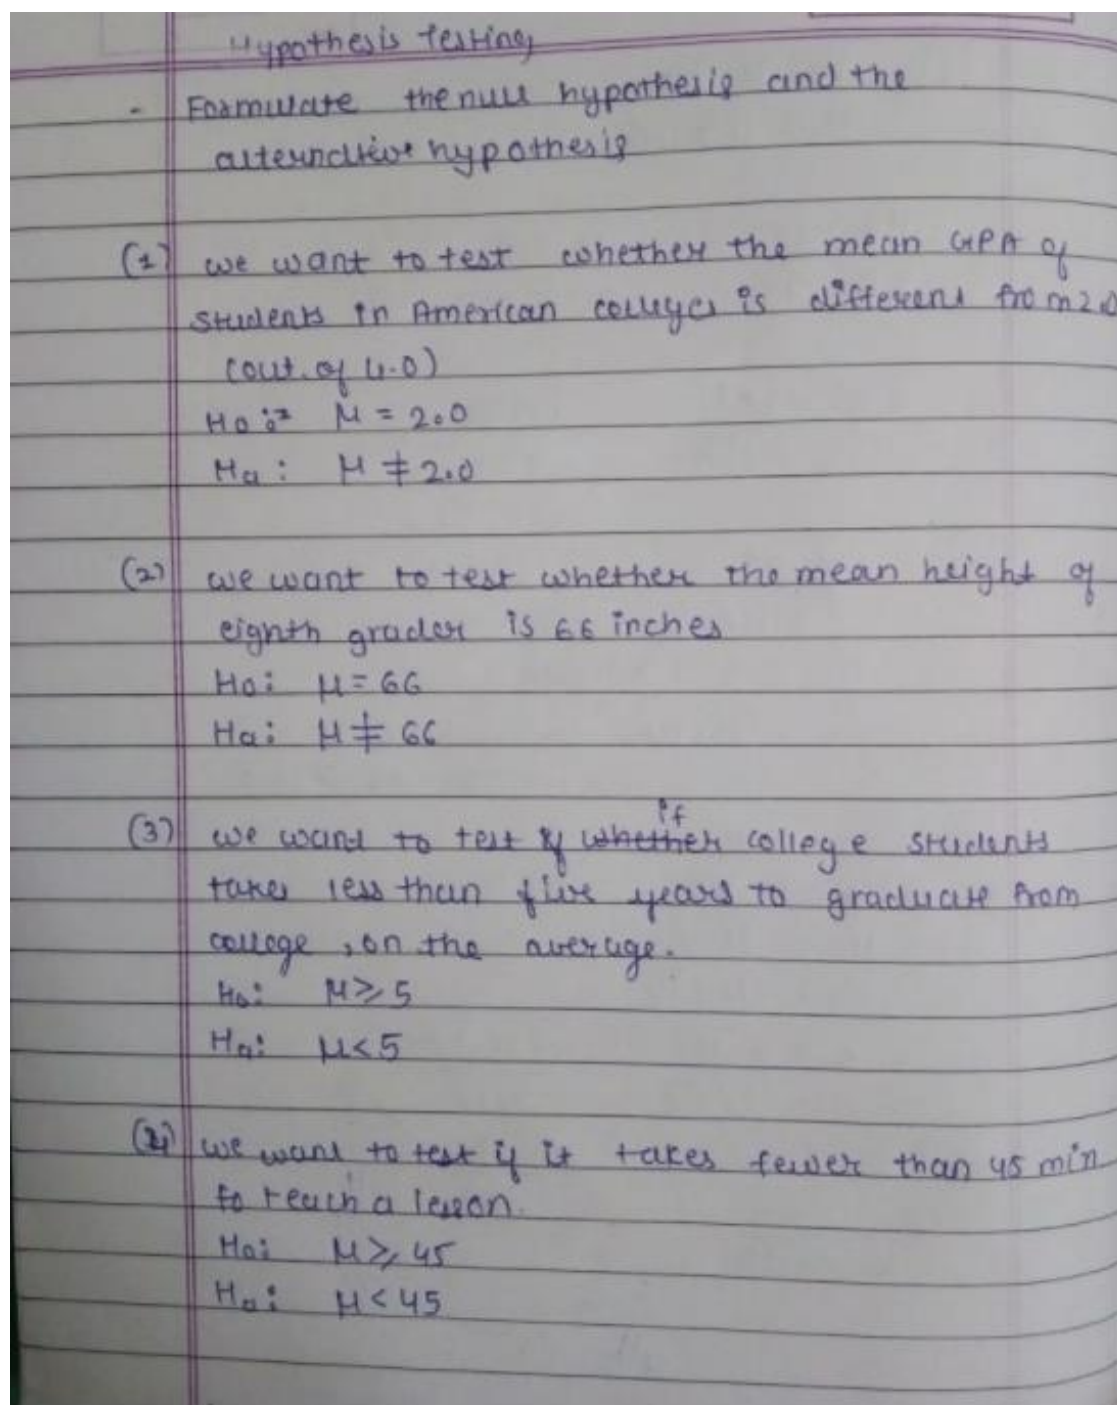 Hypothesis Testing
- Formulate the null hypothesis and the
alternative hypothesis
(1) we want to test whether the mean GPA of
students in American colleges is different from 2.0
(out of 4.0)
H0: μ = 2.0
Ha: μ ≠ 2.0
(2) we want to test whether the mean height of
eighth grader is 66 inches
H0: μ = 66
Ha: μ ≠ 66
if
(3) we want to test if whether college students
takes less than five years to graduate from
college, on the average.
H0: μ ≥ 5
Ha: μ < 5
(4) we want to test if it takes fewer than 45 min
to teach a lesson.
H0: μ ≥ 45
Ha: μ < 45